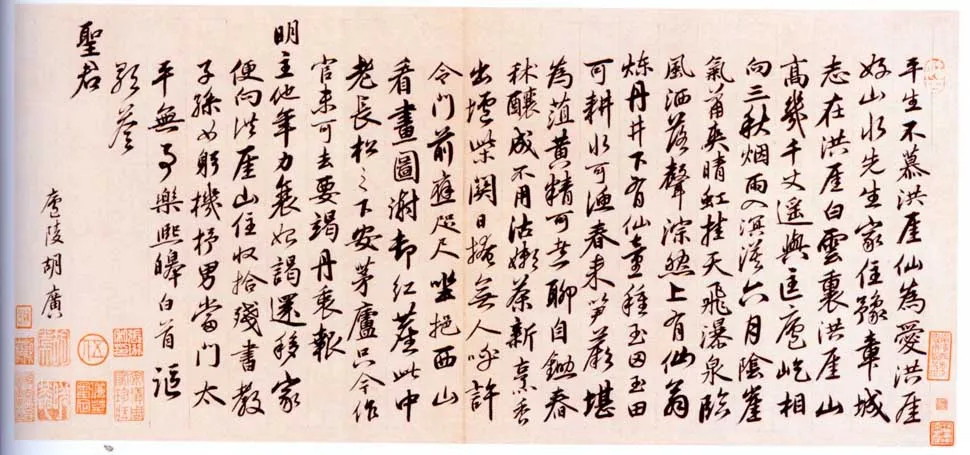 平生不慕洪厓仙為愛洪厓
好山水先生家住豫章城
志在洪厓白雲裏洪厓山
高幾千丈遥與匡廬屹相
向三秋烟雨入溟漠六月陰崖
氣蕭爽晴虹挂天飛瀑泉臨
風洒落聲淙然上有仙翁
煉丹井下有仙童種玉田玉田
可耕水可漁春来笋蕨堪
為葅黄精可煮聊自鋤春
秫釀成不用沽嫩茶新 香
出壚柴関日掩無人呼許
令門前 咫尺坐挹西山
看畫圖謝却紅塵此中
老長松之下安茅廬只今作
官未可去要竭丹衷報
明主他年力衰 謁還移家
便向洪厓山住收拾殘書教
子孫女躬機杼男當門太
平無事樂熙皞白首謳
歌答
聖君
廬陵胡廣